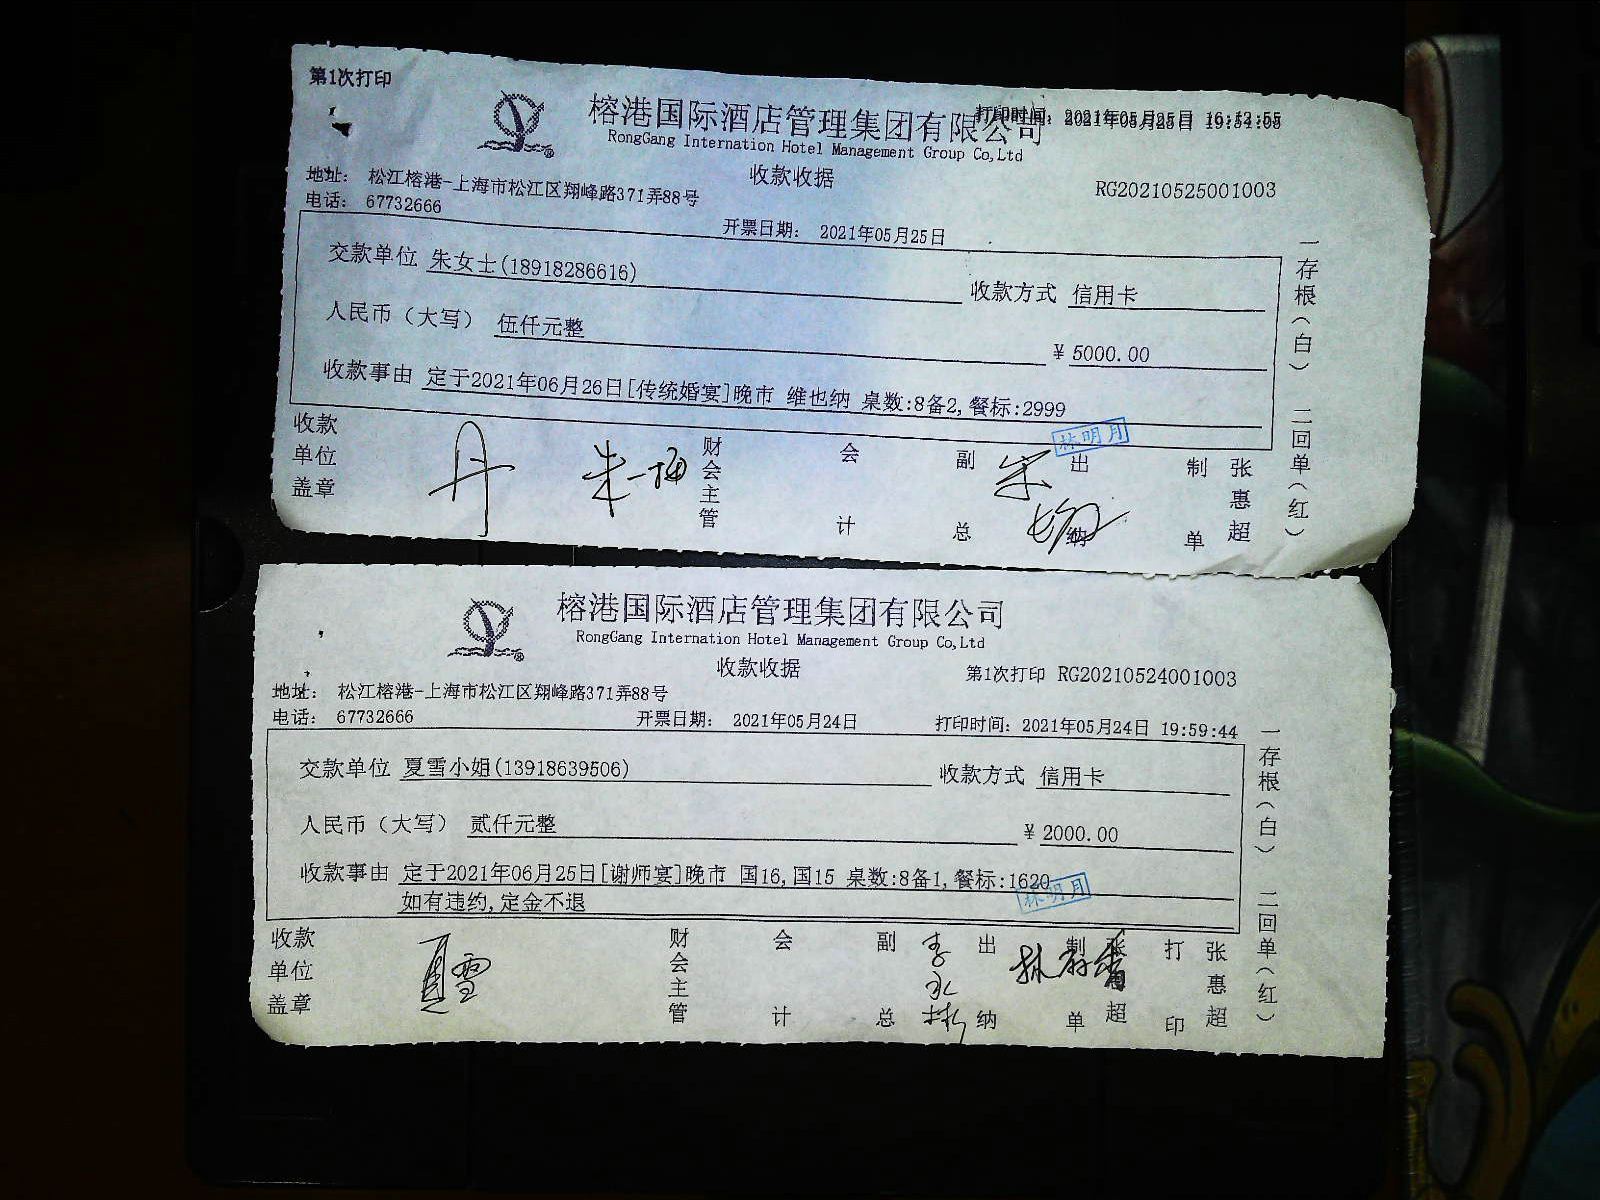 第1次打印
榕港国际酒店管理集团有限公司
打印时间: 2021年05月25日
RongGang Internation Hotel Management Group Co,Ltd
收款收据
RG20210525001003
地址: 松江榕港-上海市松江区翔峰路371弄88号
电话: 67732666
开票日期: 2021年05月25日
交款单位 朱女士(18918286616)
收款方式 信用卡
人民币（大写） 伍仟元整
¥ 5000.00
收款事由 定于2021年06月26日[传统婚宴]晚市 维也纳 桌数:8备2,餐标:2999
林明月
收款单位盖章
丹
财会主管
会计
副总
出纳
制单
张惠超
一存根(白) 二回单(红)
榕港国际酒店管理集团有限公司
RongGang Internation Hotel Management Group Co,Ltd
收款收据
第1次打印 RG20210524001003
地址: 松江榕港-上海市松江区翔峰路371弄88号
电话: 67732666
开票日期: 2021年05月24日
打印时间: 2021年05月24日 19:59:44
交款单位 夏雪小姐(13918639506)
收款方式 信用卡
人民币（大写） 贰仟元整
¥ 2000.00
收款事由 定于2021年06月25日[谢师宴]晚市 国16,国15 桌数:8备1,餐标:1620
如有违约,定金不退
林明月
收款单位盖章
夏雪
财会主管
会计
副总
出纳
制单
张惠超
打印
张惠超
一存根(白) 二回单(红)